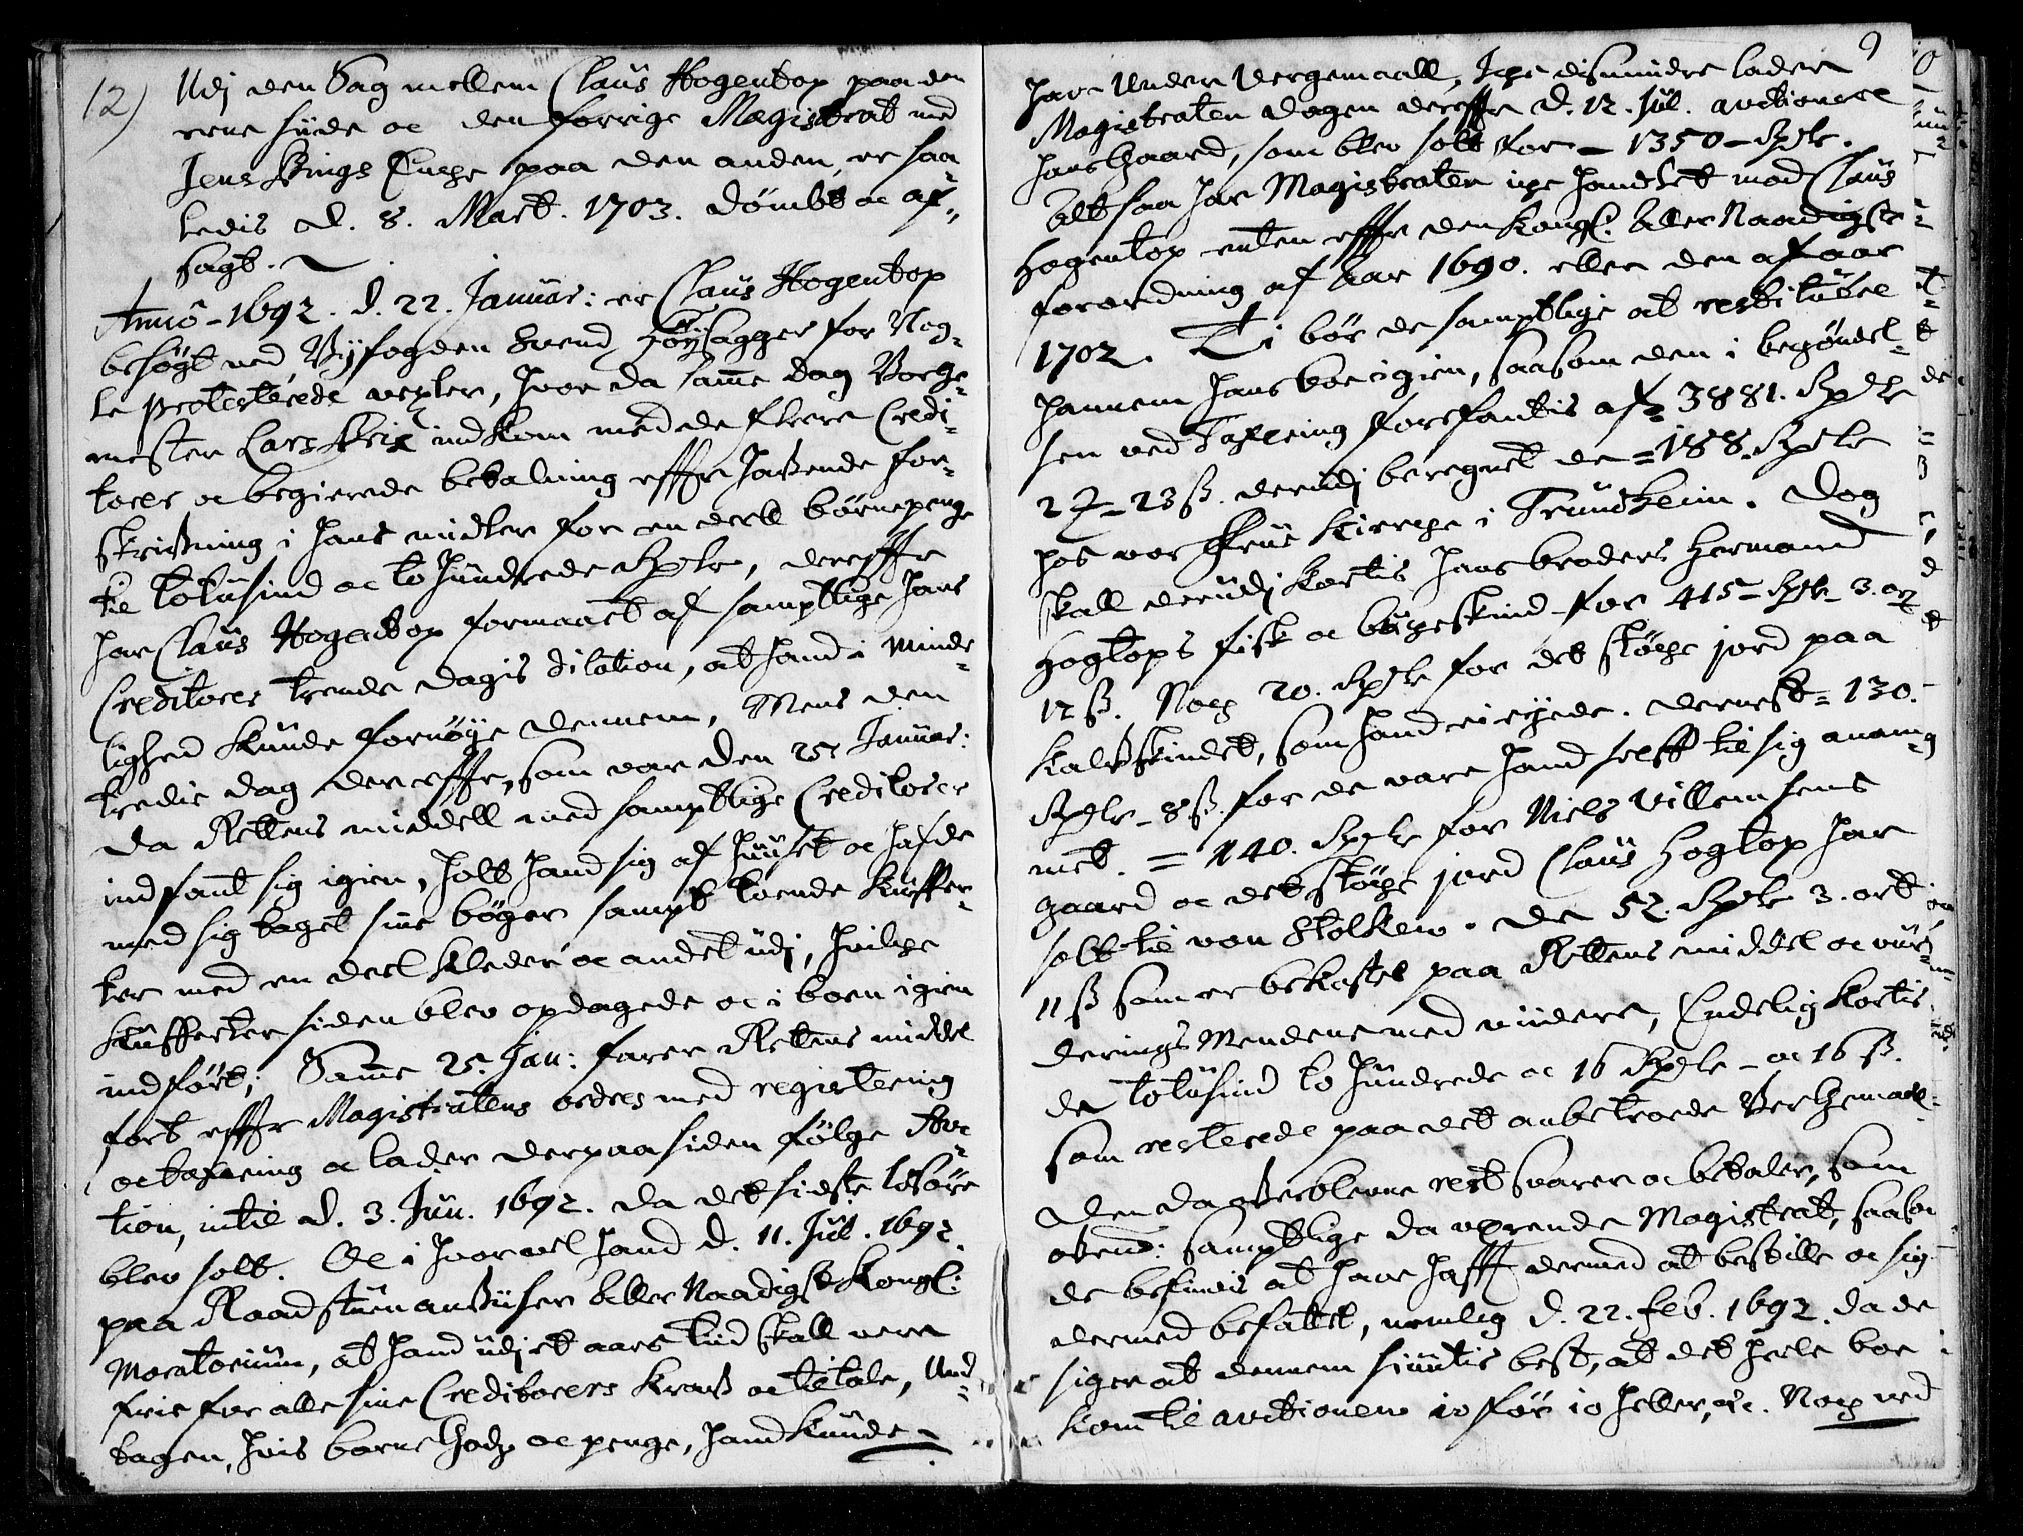 12)
Udj den Sag mellem Claus Hogentop paa den
eene siide oc den forrige Magistrat med
Jens Bings Encke paa den anden er saa„
ledis d. 8. Mart. 1703. dömbt oc af„
sagt.
Anno 1692. d. 22. Januar: er Claus Hogentop
besögt ved Byfogden Svend for Nog„
le protesterede vexler, hvor da samme dag Borge„
mester Lars Brix indkom med de fleere Credi„
torer oc begierede betalning effter hafvende for„
skrifvning i hans midler for en deell börnepenge
til totusind oc to hundrede Rixdlr, dereffter
har Claus Hogentop formaaet af samptlige hans
Creditorer trende dagis dilation, at hand i minde„
lighed kunde fornöye dennem, Mens den
tredie dag dereffter, som var den 25 Januar:
da Rettens middell med samptlige Creditorer
indfant sig igien, holt hand sig af huuset oc hafde
med sig taget sine böger sampt toende Kuffer„
ter med en deel Kleder oc andet udj, hvilche
Kufferter siden blev opdagede oc i boen igien
indfört; Samme 25. Jan: farer Rettens middel
fort effter Magistratens ordres med registering
oc taxering oc lader derpaa siden fölge Auc„
tion, intil d. 3. Jun. 1692. da det sidste lösöre
blev solt. Oc i hvorvel hand d. 11. Jul. 1692
paa Raadstuen anviiser Aller Naadigst Kongl:
Moratorium, at hand udj et aars tiid skall vere
frie for alle sine Creditorers Kraf oc tiltale, Und„
tagen, hvis barne Godz oc penge, hand kunde
9
have under Vergemaall, Icke dismindre lader
Magistraten dagen dereffter d. 12. Jul. auctionere
hans Gaard, som blev solt for - 1350 - Rixdlr.
Altsaa har Magistraten icke handlet med Claus
Hogentop enten effter den Kongl: Aller Naadigste
forordning af Aar 1690. eller den af Aar
1702. Ti bör de samptlige at restituere
hannem hans boe igien, saasom den i begöndel„
sen ved Taxering forefantis af 3881. Rixdlr
2 - 23 ß. derudj beregnet de = 188 Rixdlr
hos vor Frue Kircke i Trundheim. Dog
skall derudj Kortis hans broders Hermand
Hogtops fisk oc buckeskind for 415 - Rixdlr - 3. ort
12 ß. Noch 20. Rixdlr for det stöcke jord paa
Kalfskindet, som hand ei eyede. dernest = 130.
Rixdlr - 8 ß. for de vare hand selff til sig anam„
met. = 140. Rixdlr for Niels Villemsens
gaard oc det stöcke jord Claus Hogtop har
solt til von Stölken. de 52. Rixdlr 3. ort
11 ß som er bekostet paa Rettens middel oc vur„
derings Mendene med videre, Endelig Kortis
de totusind to hundrede oc 16 Rixdlr - oc 16 ß.
som resterede paa det anbetroede Vergemaal.
Den da ofverblevne rest svarer oc betaler, som
ovend: samptlige da verende Magistrat, saasom
de befindis at have hafft dermed at bestille oc sig
dermed befattet, nemlig d. 22. feb. 1692. da de
siger at dennem siuntis best, at det heele boe
kom til auctionen io för io heller, etc. Noch ved